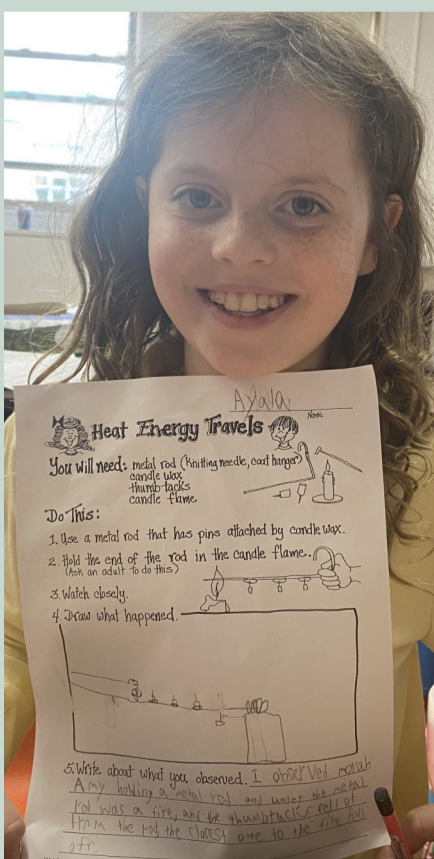 Ayala
Name
Heat Energy Travels
You will need: metal rod (Knitting needle, coat hanger)
candle wax
thumb-tacks
candle flame
Do This:
1. Use a metal rod that has pins attached by candle wax.
2. Hold the end of the rod in the candle flame.
(Ask an adult to do this)
3. Watch closely.
4. Draw what happened.
5. Write about what you observed. I observed morah
Amy holding a metal rod and under the metal
rod was a fire, and the thumbtacks fell of
from the rod, the closest one to the fire fell
off.